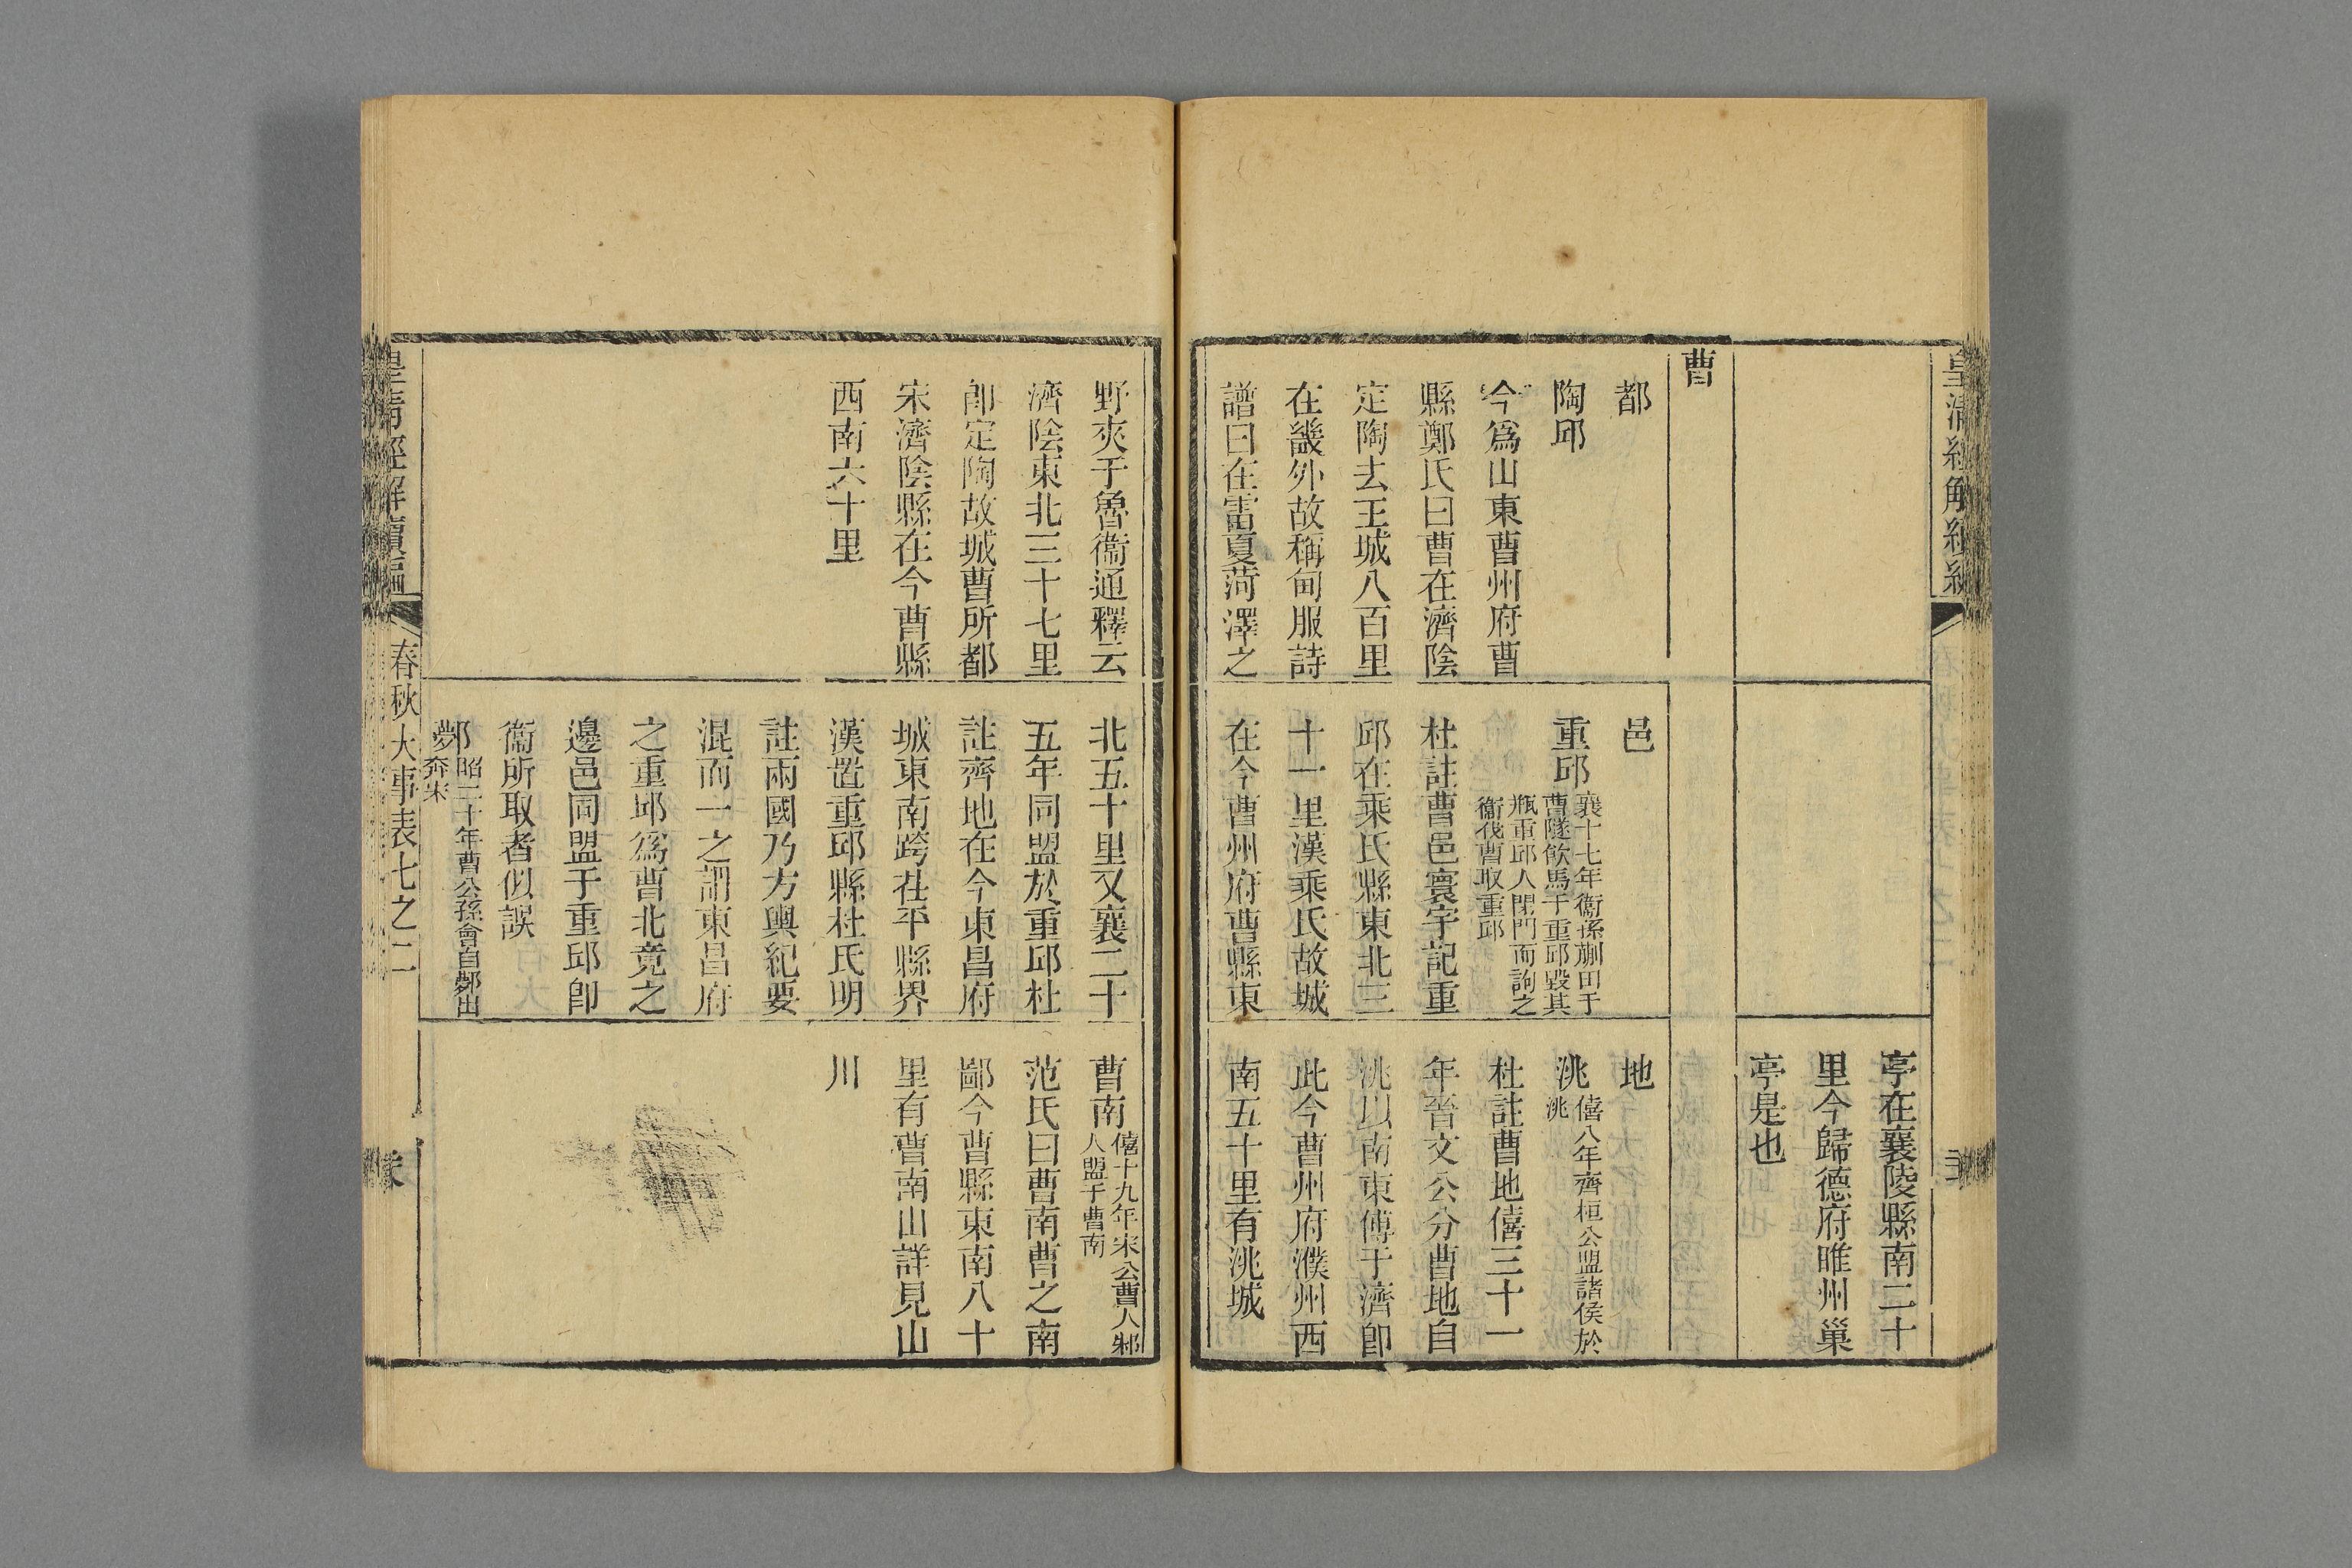 亭在襄陵縣南二十
里今歸德府睢州巢
亭是也
曹
都
陶邱
今爲山東曹州府曹
縣鄭氏曰曹在濟陰
定陶去王城八百里
在畿外故稱甸服詩
譜曰在雷夏菏澤之
邑
重邱襄十七年衞孫蒯田于
曹隧飲馬于重邱毀其
瓶重邱人閉門而訽之
衞伐曹取重邱
杜註曹邑寰宇記重
邱在乘氏縣東北三
十一里漢乘氏故城
在今曹州府曹縣東
地
洮僖八年齊桓公盟諸侯於
洮
杜註曹地僖三十一
年晉文公分曹地自
洮以南東傅于濟卽
此今曹州府濮州西
南五十里有洮城
野夾于魯衞通釋云
濟陰東北三十七里
卽定陶故城曹所都
宋濟陰縣在今曹縣
西南六十里
北五十里又襄二十
五年同盟於重邱杜
註齊地在今東昌府
城東南跨茌平縣界
漢置重邱縣杜氏明
註兩國乃方輿紀要
混而一之謂東昌府
之重邱爲曹北竟之
邊邑同盟于重邱卽
衞所取者似誤
鄸昭二十年曹公孫會自鄸出
奔宋
曹南僖十九年宋公曹人邾
人盟于曹南
范氏曰曹南曹之南
鄙今曹縣東南八十
里有曹南山詳見山
川
皇清經解續編
春秋大事表七之二